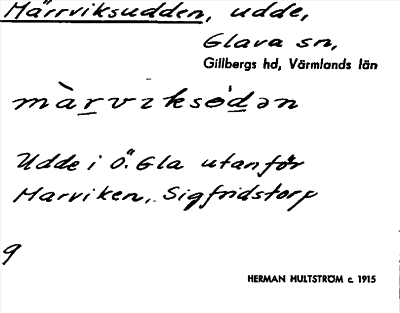 Märrviksudden, udde,
Glava sn,
Gillbergs hd, Värmlands län
màrviksòdən
Udde i Ö. Gla utanför
Marviken, Sigfridstorp
9
HERMAN HULTSTRÖM c. 1915